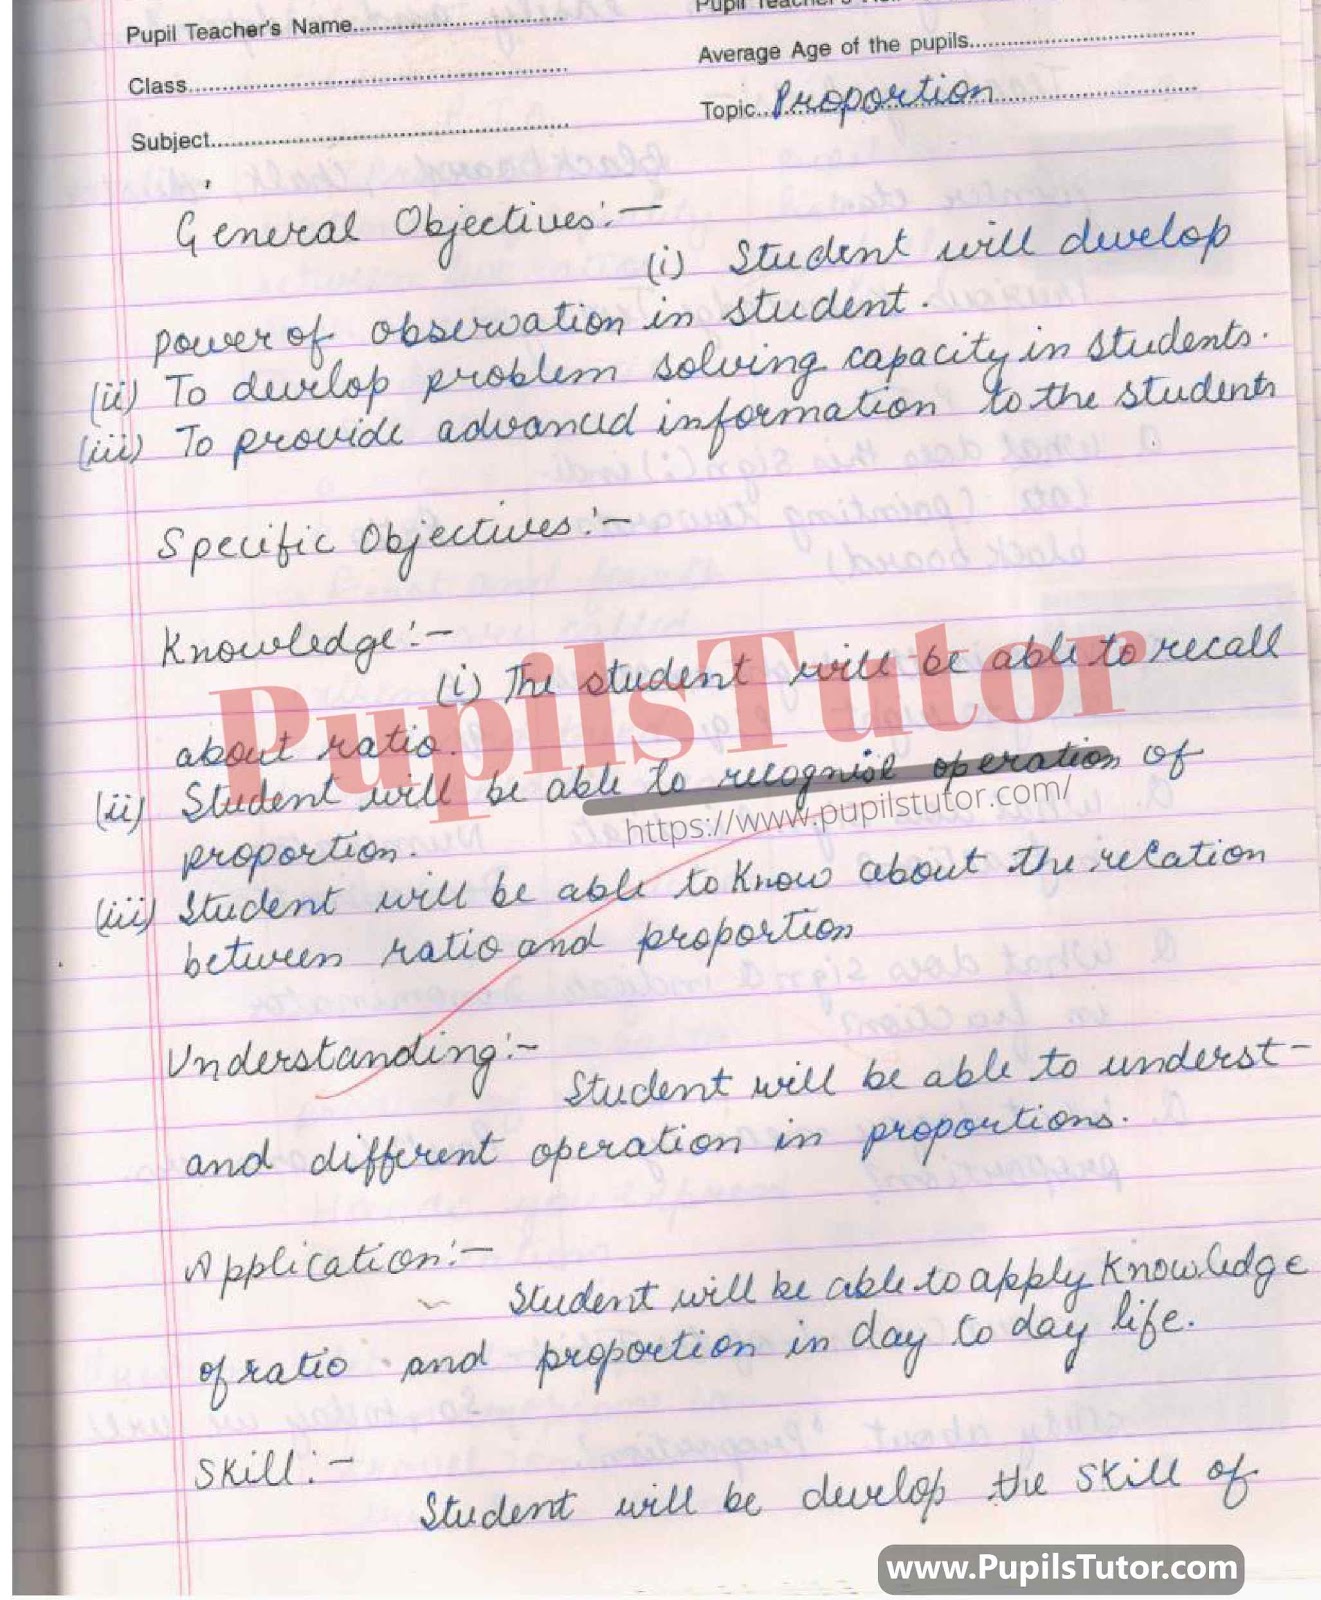 Pupil Teacher's Name
Pupil Teacher's
Class
Average Age of the pupils
Subject
Topic Proportion
General Objectives:-
(i) Student will develop
power of observation in student.
(ii) To develop problem solving capacity in students.
(iii) To provide advanced information to the students
Specific Objectives:-
Knowledge:-
(i) The student will be able to recall
about ratio.
(ii) Student will be able to recognise operation of
proportion.
(iii) Student will be able to Know about the relation
between ratio and proportion
Understanding:-
Student will be able to underst-
and different operation in proportions.
Application:-
Student will be able to apply Knowledge
of ratio and proportion in day to day life.
Skill:-
Student will be develop the skill of
PupilsTutor
https://www.pupilstutor.com/
www.PupilsTutor.com